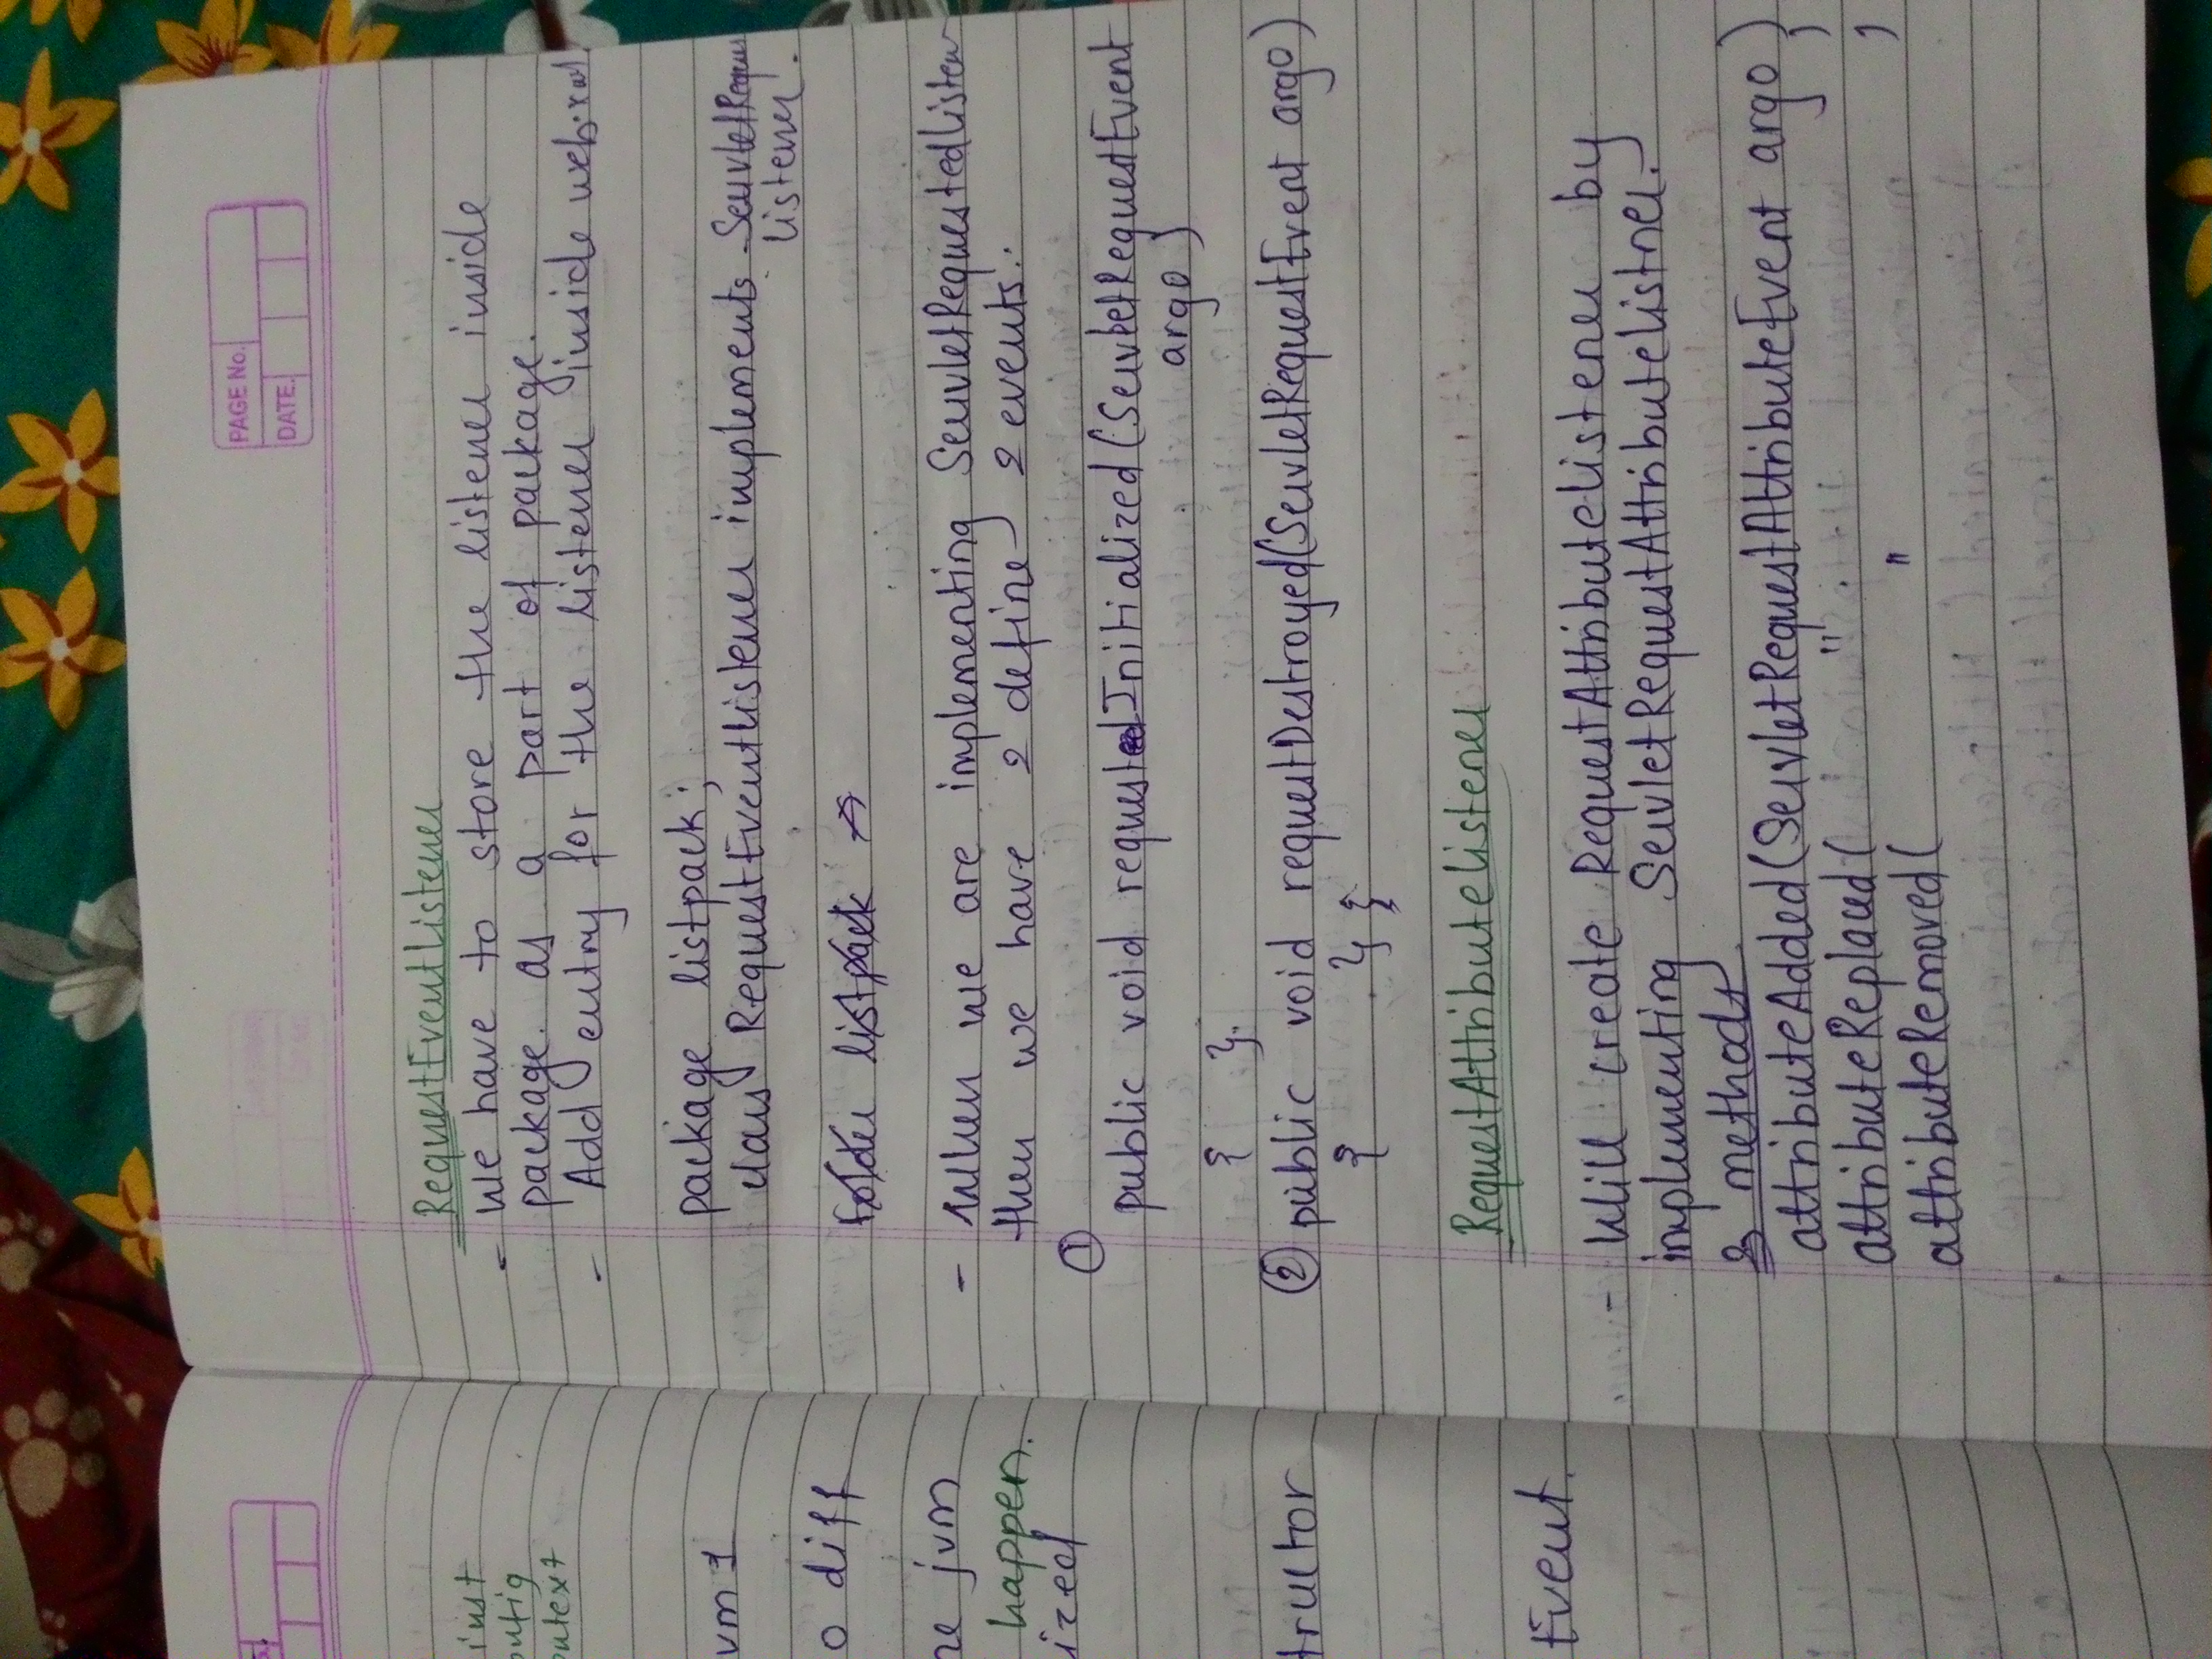 PAGE No.
DATE.
RequestEventListener
- We have to store the listener inside
package. as a part of package.
- Add entry for the listener inside web.xml.
package listpack;
class RequestEventListener implements ServletReques
listener.
Folder listpack ⇒
- When we are implementing ServletRequestedlisten
then we have 2 define 2 events.
①
public void requestedInitialized (ServletRequestEvent
argo)
{ }.
② public void requestDestroyed(ServletRequestEvent argo)
{ } }
RequestAttributelistener
- Will create RequestAttributelistener by
implementing ServletRequestAttributelistner.
3 methods
attributeAdded(ServletRequestAttributeEvent argo)
attributeReplaced( " )
attributeRemoved( " )
inst
onfig
ontext
vm 1
o diff
ne jvm
happen.
ized
tructor
Event.